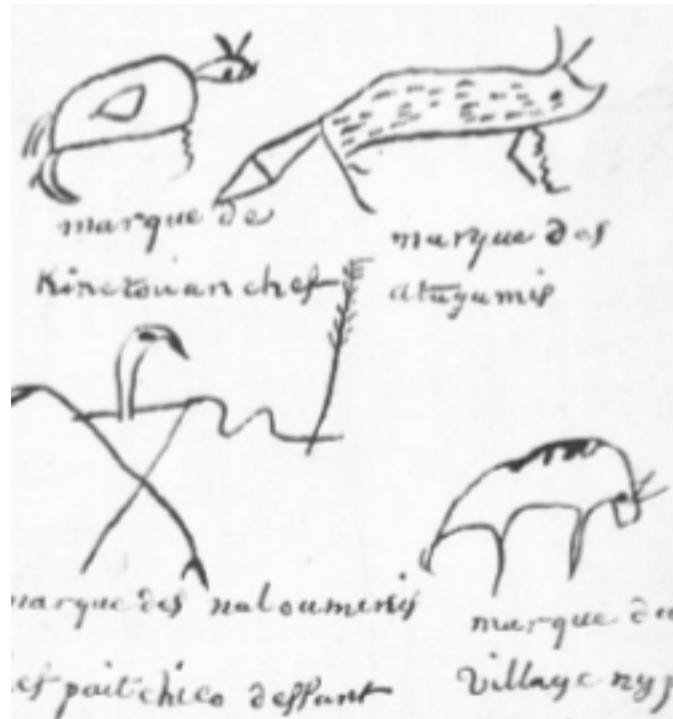 marque de
Kinctouan chef
marque des
atagamis
marque des maloumenis
chico deffunt
marque du
village